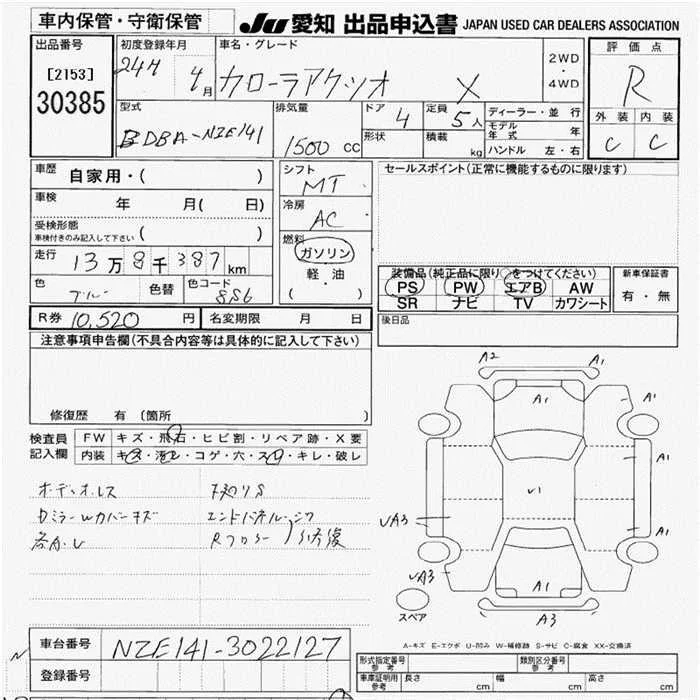 車内保管・守衛保管
JU 愛知 出品申込書 JAPAN USED CAR DEALERS ASSOCIATION
出品番号
[2153]
30385
初度登録年月
24年 4月
車名・グレード
カローラアクシオ X
2WD・4WD
評価点
R
外装 内装
C C
型式
DBA-NZE141
排気量
1500 CC
ドア 4
形状
定員 5人
積載 kg
ディーラー・並行
モデル年式 年
ハンドル 左・右
車歴
自家用・( )
車検 年 月( 日)
受検形態
車検付きのみ記入して下さい ( )
走行 13万8千387km
色 色替 色コード
8S6
シフト
MT
冷房
AC
燃料
ガソリン
軽・油
( ・ )
セールスポイント(正常に機能するものに限ります)
装備品(純正品に限り○をつけてください)
PS PW エアB AW
SR ナビ TV カワシート
新車保証書
有・無
R券 10,520 円
名変期限 月 日
後日品
注意事項申告欄(不具合内容等は具体的に記入して下さい)
修復歴 有 (箇所 )
検査員
記入欄
FW キズ・飛石・ヒビ割・リペア跡・X要
内装 キズ・汚レ・コゲ・穴・スレ・キレ・破レ
オーディオレス
ドミラーWカバーキズ
エンドパネル・
Rフロアー 修復
A2 A1
A1 A1
A1
U1
UA3 A1
UA3 A1
A3
スペア
A-キズ E-エクボ U-凹み W-補修跡 S-サビ C-腐食 XX-交換済
車台番号 NZE141-3022127
登録番号
N
形式指定番号 参考
類別区分番号 参考
車庫証明用 参考
長さ cm 幅 cm 高さ cm